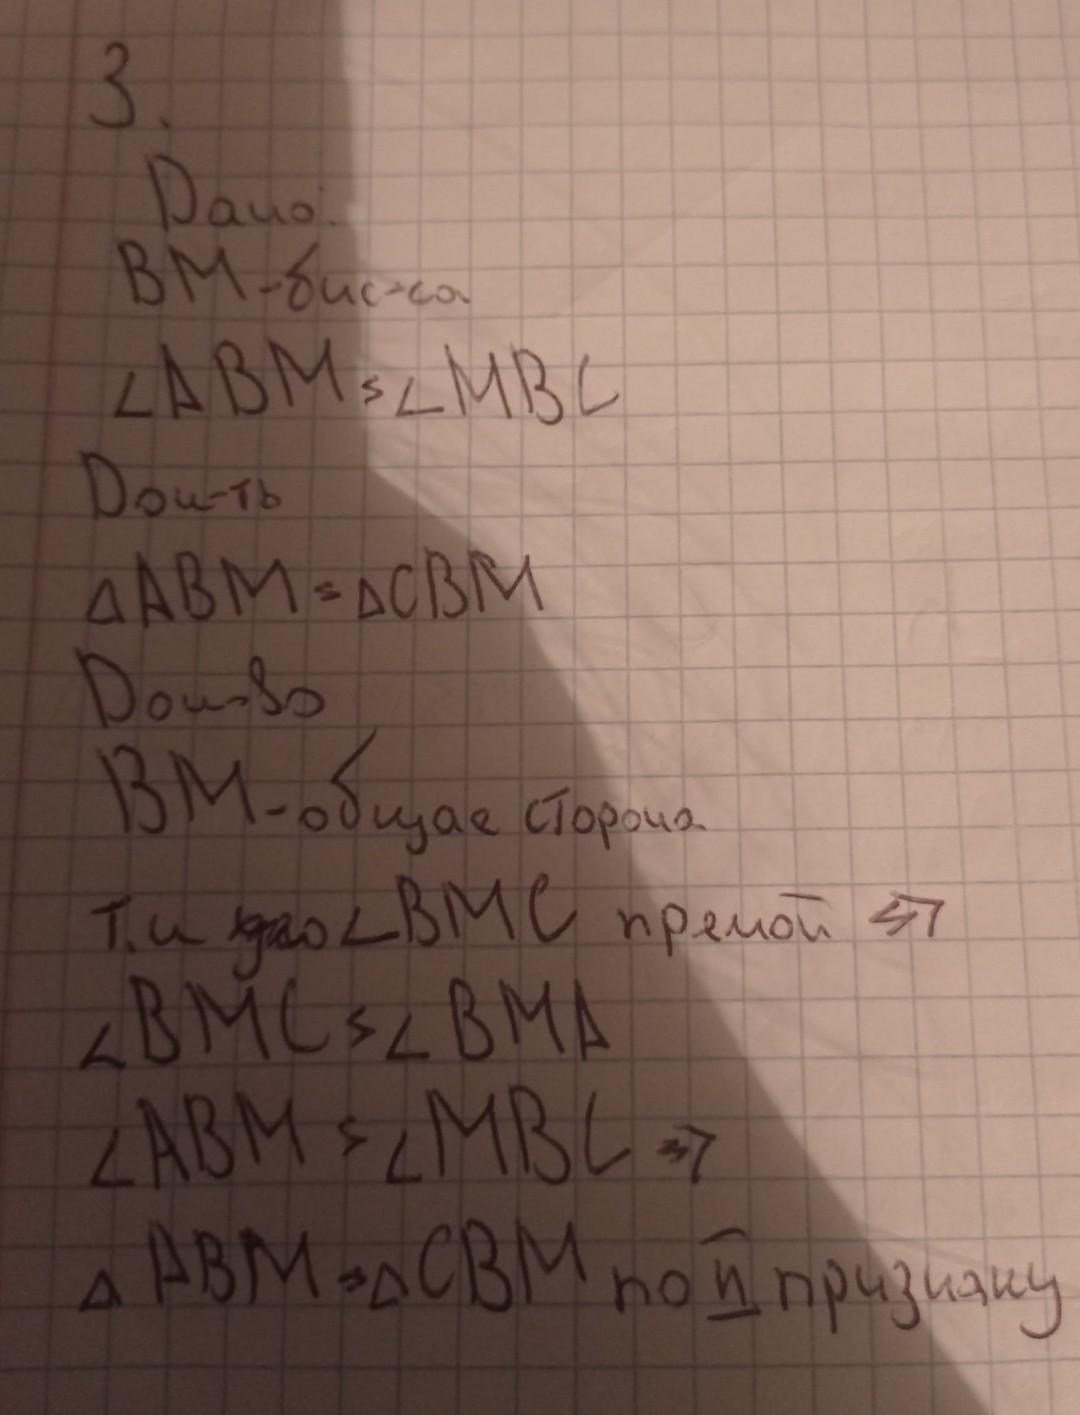 3.
Дано:
BM-бис-са
∠ABM=∠MBC
Док-ть
△ABM=△CBM
Док-во
BM-общая сторона
т.к ∠BMC прямой =>
∠BMC=∠BMA
∠ABM=∠MBC =>
△ABM=△CBM по II признаку